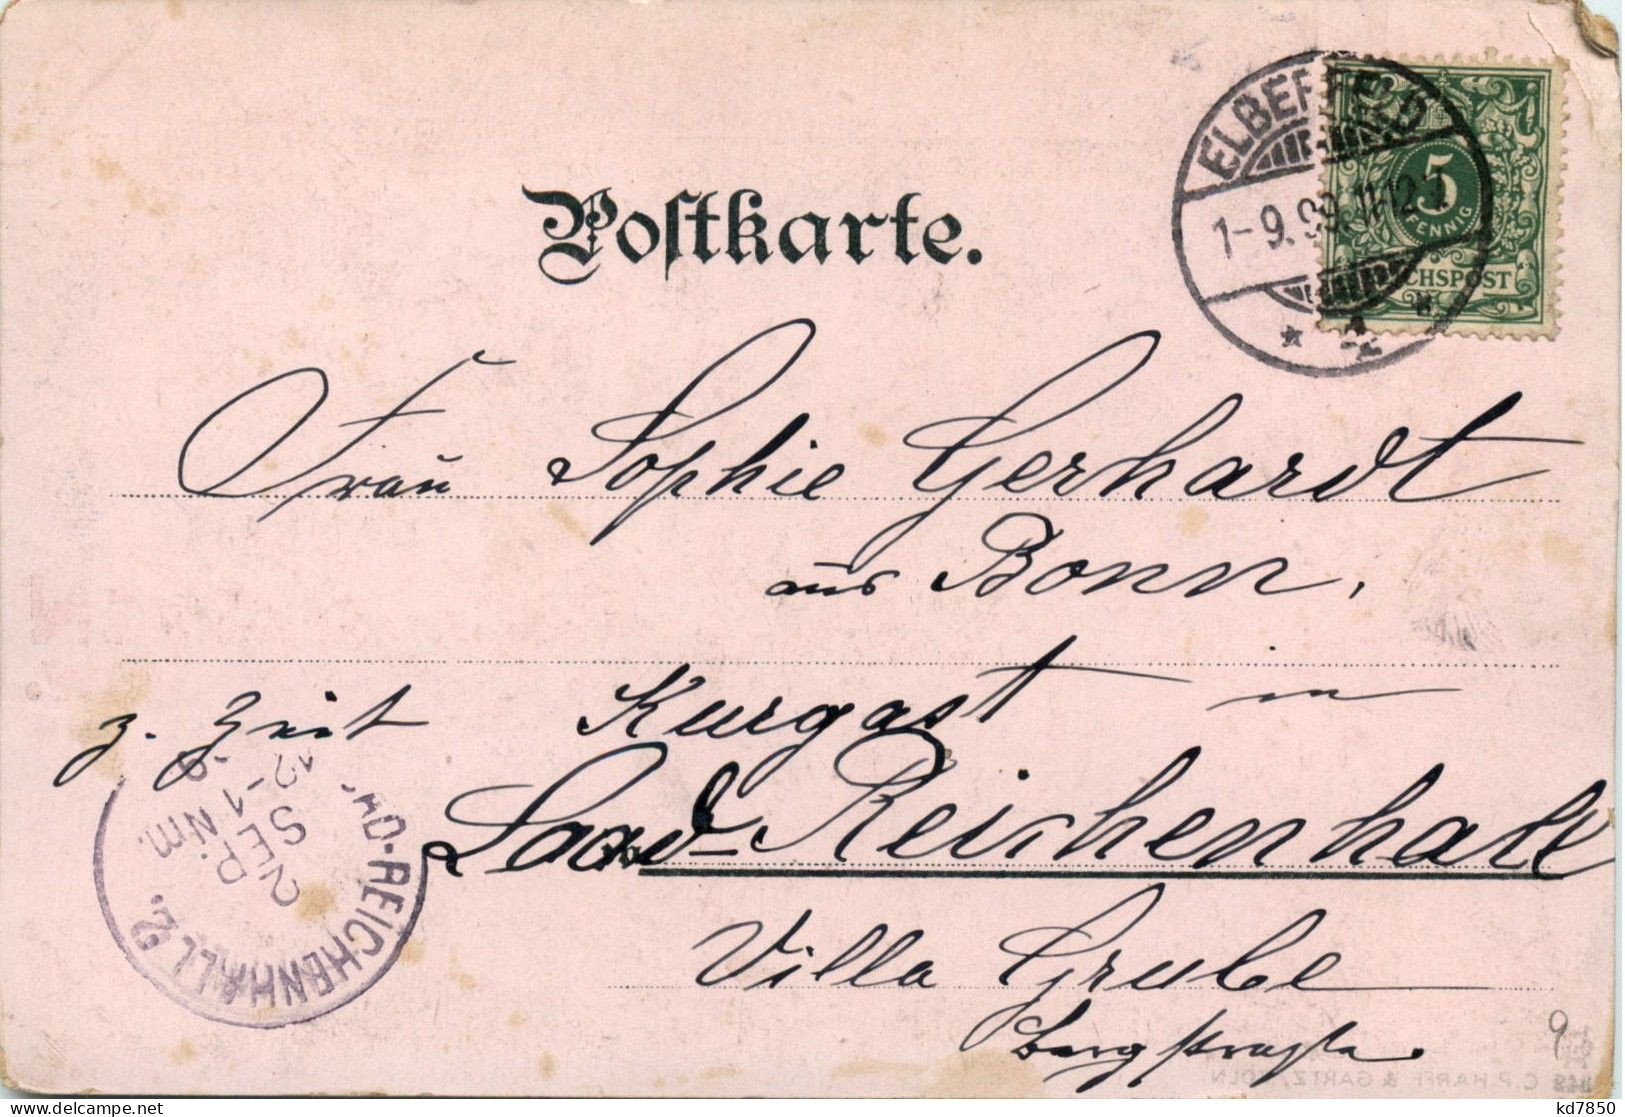 Postkarte.
ELBERFELD
1-9.99.11-12.V
* 1 *
5
PFENNIG
REICHSPOST
Frau Sophie Gerhardt
aus Bonn,
z. Zeit Kurgast in
Bad-Reichenhall
Villa Grube
Bergstraße.
BAD-REICHENHALL 2.
2 SEP.
12-1 Nm.
99
9
C.P. HARFF & GARTZ, KÖLN
delcampe.net
kd7850